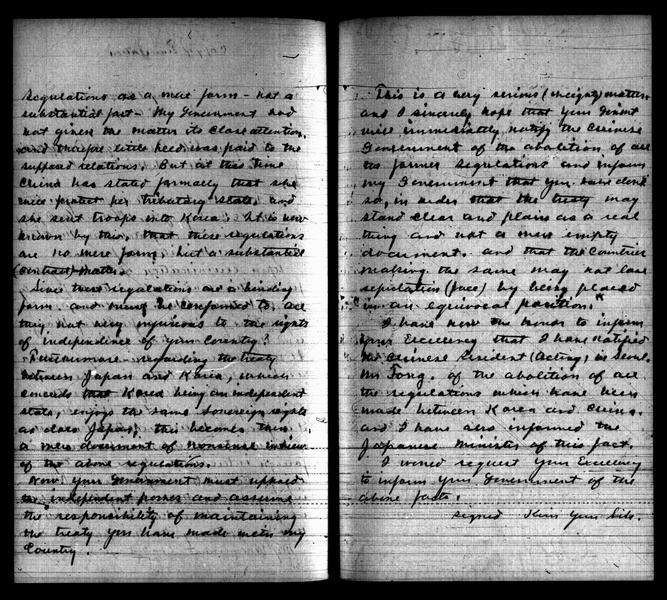 regulations as a mere form - not a
substantial fact - My Government had
not given the matter its close attention,
and therefore little heed was paid to the
supposed relations. But at this time
China has stated formally that she
will protect her tributary state, and
she sent troops into Korea. It is now
known by this, that these regulations
are no mere form, but a substantial
(contract) matter.
Since these regulations are a binding
form, and must be conformed to, are
they not very injurious to the rights
of independence of your Country?
Furthermore - regarding the treaty
between Japan and Korea, which
records that Korea being an independent
state, enjoys the same sovereign rights
as does Japan, this becomes then
a mere document of nonsense in view
of the above regulations.
Now your Government must uphold
the independent power and assume
the responsibility of maintaining
the treaty you have made with my
Country.
This is a very serious (weighty) matter
and I sincerely hope that your Govmt
will immediately notify the Chinese
Government of the abolition of all
its former regulations and inform
my Government that you have done
so, in order that the treaty may
stand clear and plain as a real
thing and not a mere empty
document. and that the Countries
making the same may not lose
reputation (face) by being placed
in an equivocal position."
I have now the honor to inform
Your Excellency that I have notified
the Chinese Resident (acting) in Seoul,
Mr Tong, of the abolition of all
the regulations which have been
made between Korea and China.
and I have also informed the
Japanese Minister of this fact.
I would request Your Excellency
to inform Your Government of the
above facts.
signed Kim Yun Sik.